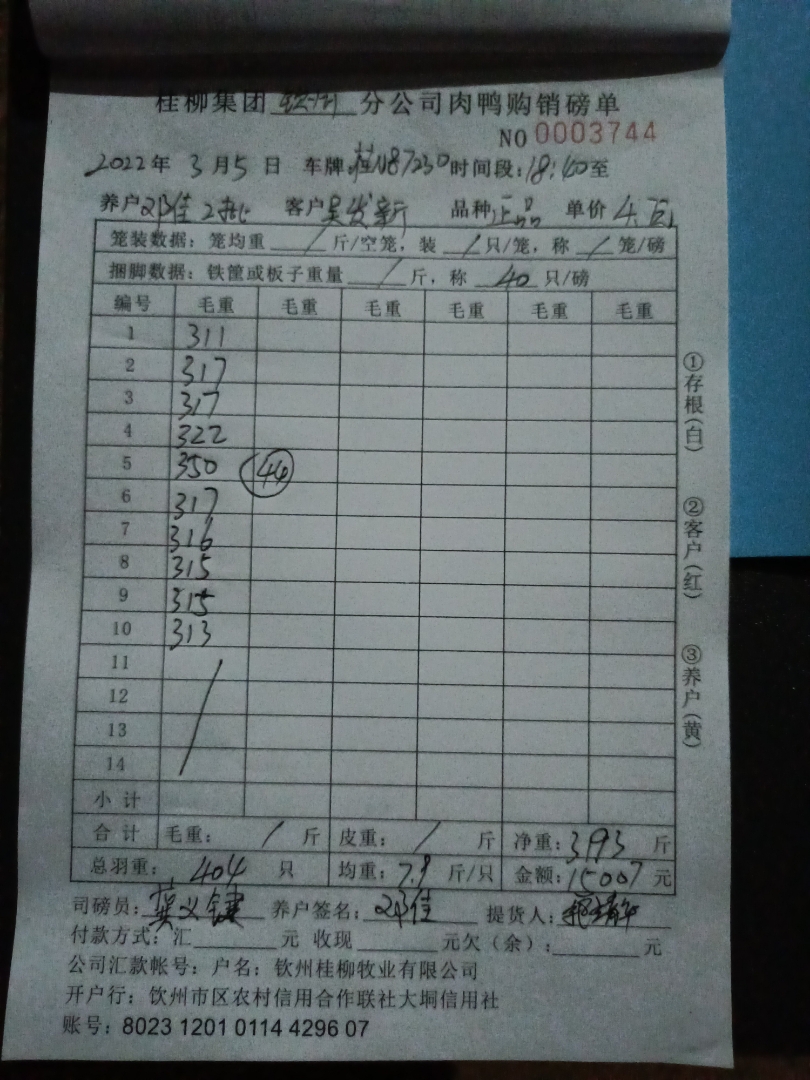 桂柳集团 钦州 分公司肉鸭购销磅单
NO 0003744
2022年 3月5日 车牌:桂N87230 时间段:18:40至
养户 邓佳2批 客户 吴发新 品种 正品 单价 4.
笼装数据：笼均重 / 斤/空笼，装 / 只/笼，称 / 笼/磅
捆脚数据：铁筐或板子重量 / 斤，称 40 只/磅
编号 毛重 毛重 毛重 毛重 毛重 毛重
1 311
2 317
3 317
4 322
5 350 44
6 317
7 316
8 315
9 315
10 313
11
12
13
14
小 计
合 计 毛重： / 斤 皮重： / 斤 净重：3193 斤
总羽重： 404 只 均重：7.9 斤/只 金额：15007 元
司磅员： 养户签名：邓佳 提货人：
付款方式：汇 元 收现 元欠（余）： 元
公司汇款帐号：户名：钦州桂柳牧业有限公司
开户行：饮州市区农村信用合作联社大垌信用社
账号：8023 1201 0114 4296 07
①存根(白)
②客户(红)
③养户(黄)